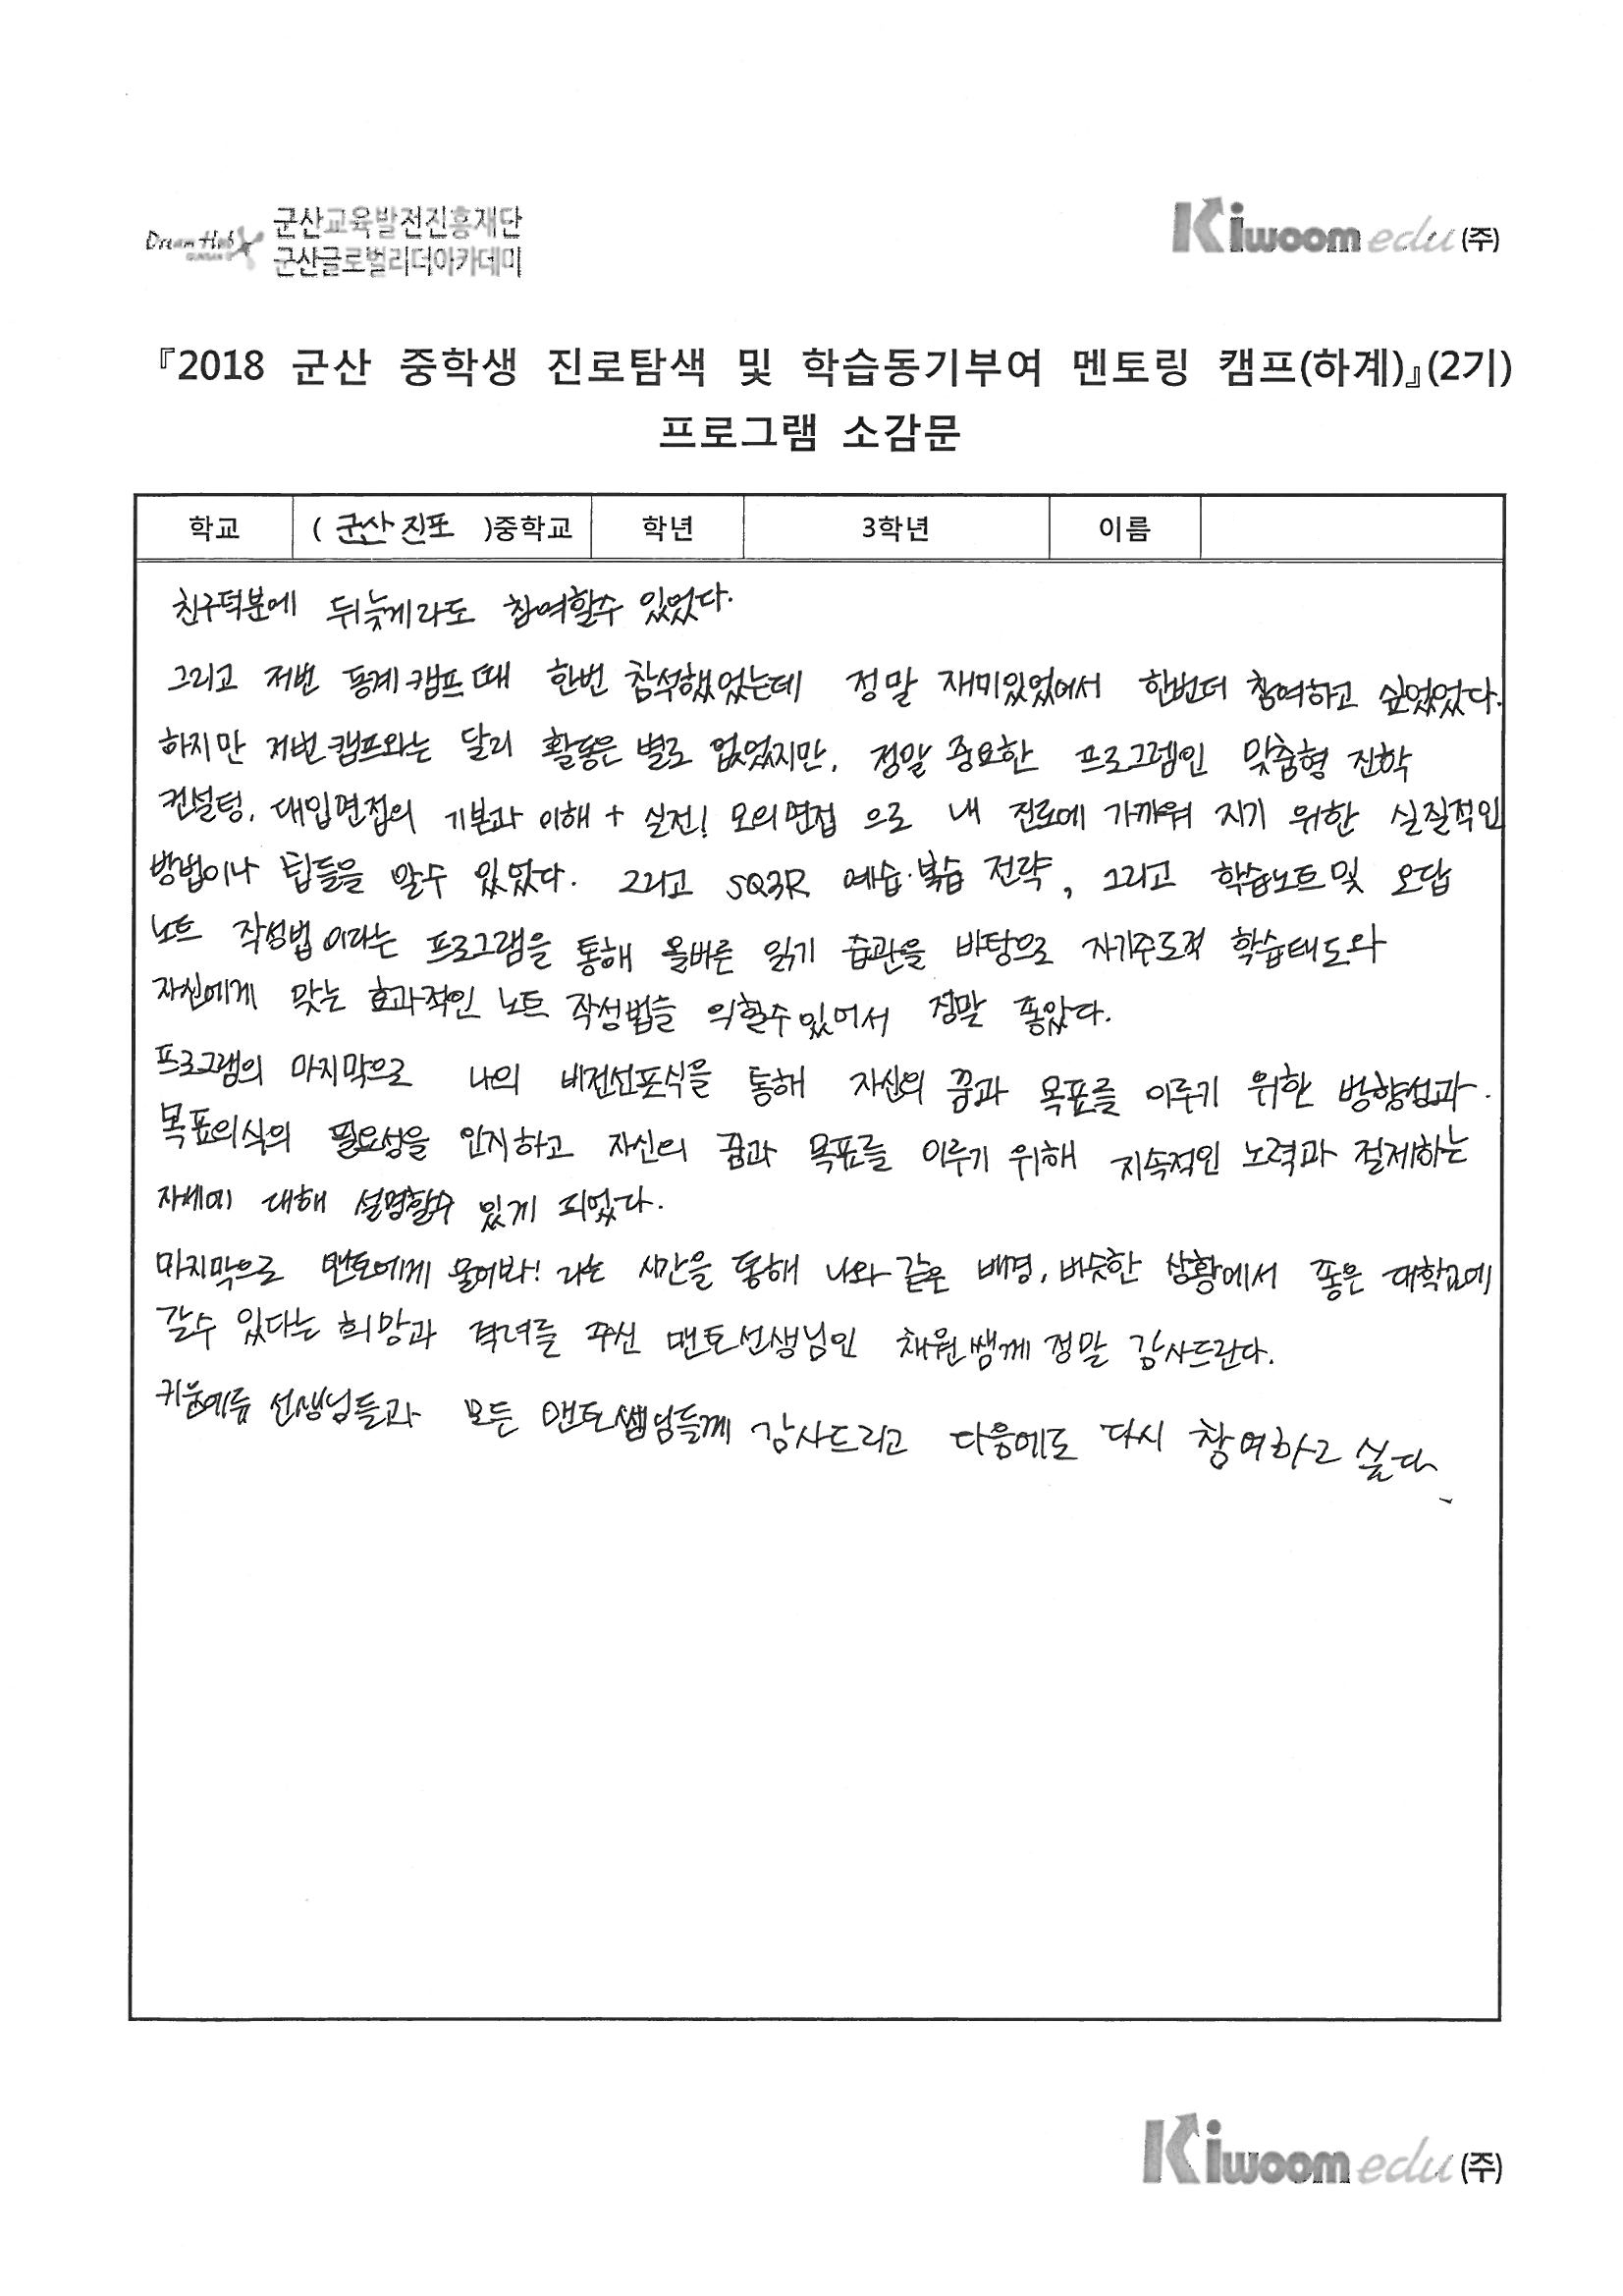 Dream Hub GUNSAN 군산교육발전진흥재단
군산글로벌리더아카데미
Kiwoom edu (주)
『2018 군산 중학생 진로탐색 및 학습동기부여 멘토링 캠프(하계)』(2기)
프로그램 소감문
학교 ( 군산 진포 )중학교 학년 3학년 이름
친구덕분에 뒤늦게라도 참여할수 있었다.
그리고 저번 동계캠프 때 한번 참석했었는데 정말 재미있었어서 한번더 참여하고 싶었었다.
하지만 저번캠프와는 달리 활동은 별로 없었지만, 정말 중요한 프로그램인 맞춤형 진학
컨설팅, 대입면접의 기본과 이해 + 실전! 모의면접 으로 내 진로에 가까워 지기 위한 실질적인
방법이나 팁들을 알수 있었다. 그리고 SQ3R 예습·복습 전략, 그리고 학습노트 및 오답
노트 작성법 이라는 프로그램을 통해 올바른 읽기 습관을 바탕으로 자기주도적 학습태도와
자신에게 맞는 효과적인 노트 작성법을 익힐수있어서 정말 좋았다.
프로그램의 마지막으로 나의 비전선포식을 통해 자신의 꿈과 목표를 이루기 위한 방향성과.
목표의식의 필요성을 인지하고 자신의 꿈과 목표를 이루기 위해 지속적인 노력과 절제하는
자세에 대해 설명할수 있게 되었다.
마지막으로 멘토에게 물어봐! 라는 시간을 통해 나와 같은 배경, 비슷한 상황에서 좋은 대학교에
갈수 있다는 희망과 격려를 주신 멘토선생님인 채원쌤께 정말 감사드린다.
키움에듀 선생님들과 모든 멘토쌤님들께 감사드리고 다음에도 다시 참여하고 싶다.
Kiwoom edu (주)